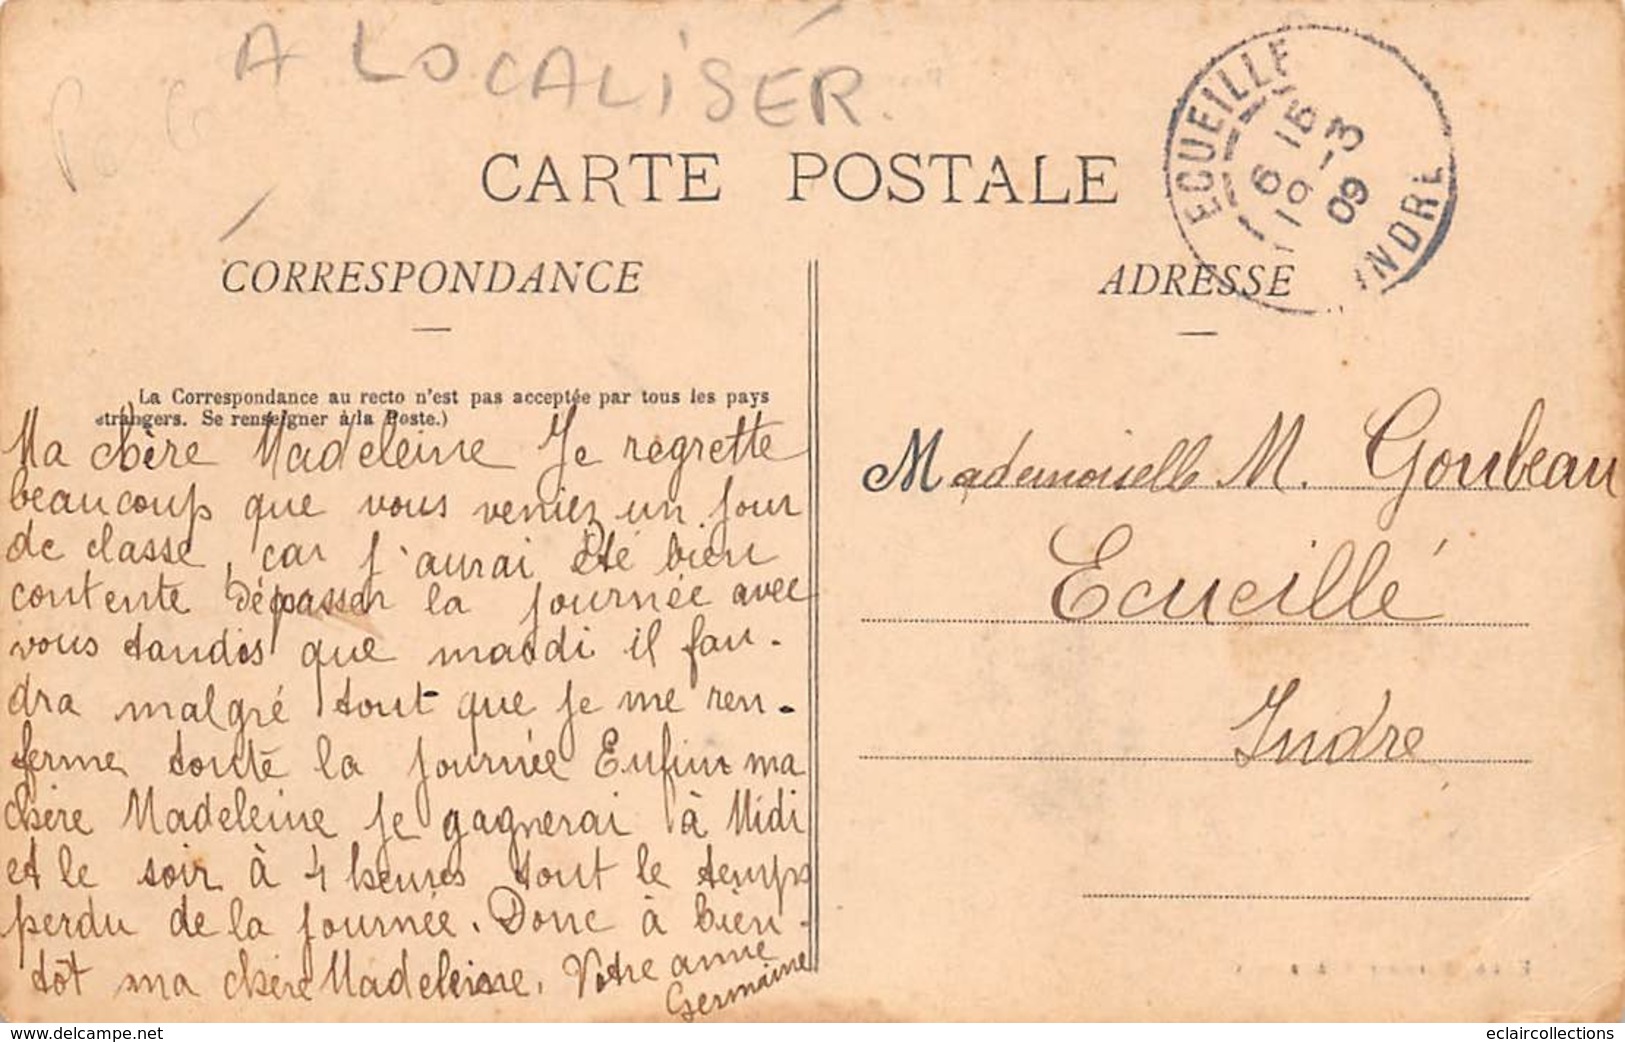 A LOCALISÉR.
CARTE POSTALE
ECUEILLE
6 15
19 -3
09
INDRE
CORRESPONDANCE
ADRESSE
La Correspondance au recto n'est pas acceptée par tous les pays
étrangers. Se renseigner à la Poste.)
Ma chère Madeleine Je regrette
beaucoup que vous veniez un jour
de classe, car j'aurai été bien
contente de passer la journée avec
vous tandis que mardi il fau-
dra malgré tout que je me ren-
ferme toute la journée Enfin ma
chère Madeleine je gagnerai à Midi
et le soir à 4 heures tout le temps
perdu de la journée. Donc à bien-
tôt ma chère Madeleine. Votre amie
Germaine
Mademoiselle M. Goubeau
Ecueillé
Indre
Delcampe.net
eclaircollections